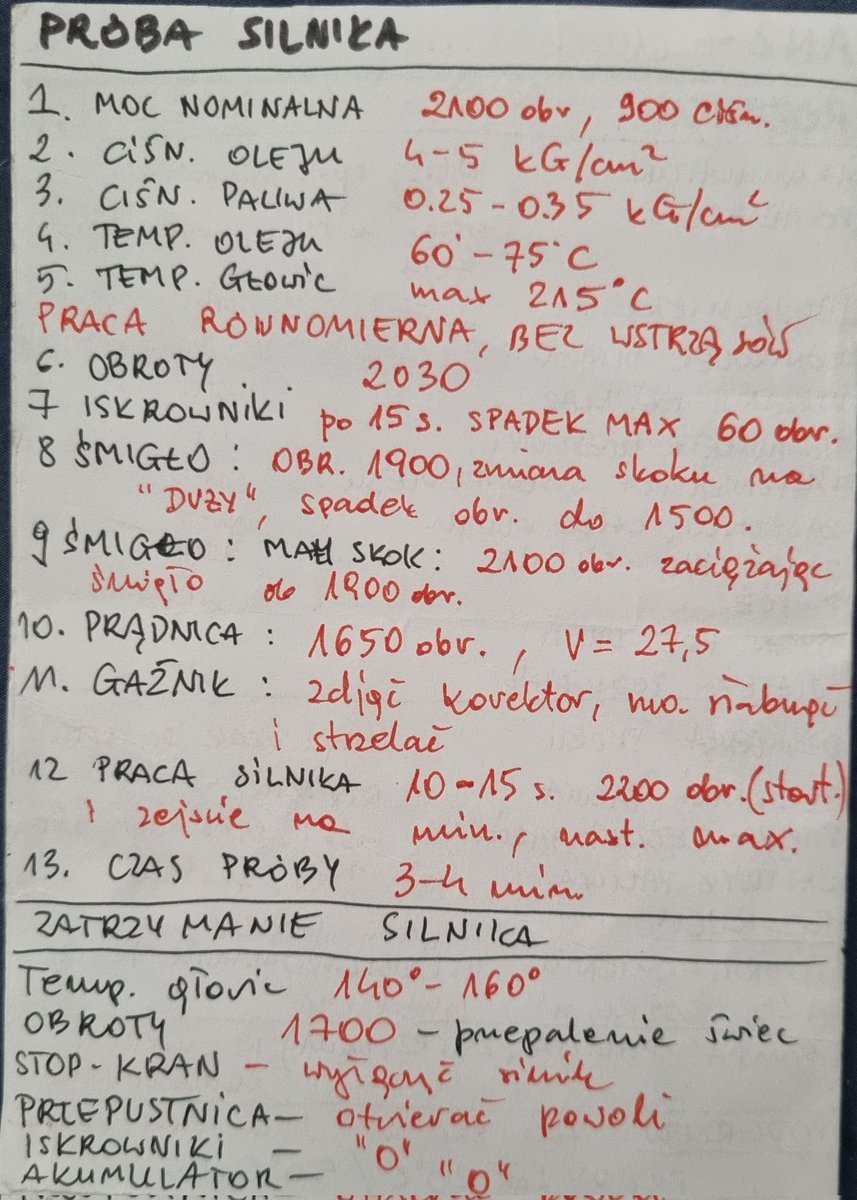 PRÓBA SILNIKA
1. MOC NOMINALNA 2100 obr, 900 ciśn.
2. CIŚN. OLEJU 4-5 kG/cm²
3. CIŚN. PALIWA 0.25-0.35 kG/cm²
4. TEMP. OLEJU 60°-75°C
5. TEMP. GŁOWIC max 215°C
PRACA RÓWNOMIERNA, BEZ WSTRZĄSÓW
6. OBROTY 2030
7 ISKROWNIKI po 15 s. SPADEK MAX 60 obr.
8 ŚMIGŁO: OBR. 1900, zmiana skoku na
"DUŻY", spadek obr. do 1500.
9 ŚMIGŁO: MAŁY SKOK: 2100 obr. zaciężając
śmigło do 1900 obr.
10. PRĄDNICA: 1650 obr., V = 27,5
11. GAŹNIK: zdjąć korektor, ma
i strzelać
12 PRACA SILNIKA 10-15 s. 2200 obr. (start.)
i zejście na min., nast. max.
13. CZAS PRÓBY 3-4 min.
ZATRZYMANIE SILNIKA
Temp. głowic 140°-160°
OBROTY 1700 - przepalenie świec
STOP-KRAN - wyłączyć silnik
PRZEPUSTNICA - otwierać powoli
ISKROWNIKI - "0"
AKUMULATOR - "0"